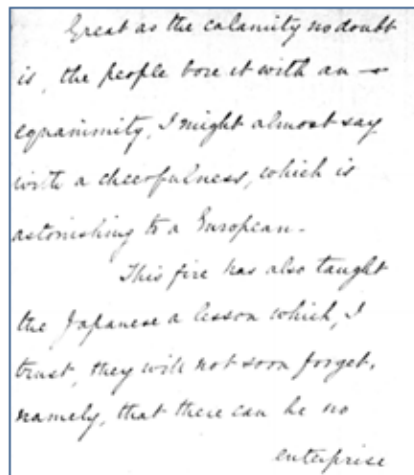 Great as the calamity no doubt
is, the people bore it with an
equanimity, I might almost say
with a cheerfulness, which is
astonishing to a European.
This fire has also taught
the Japanese a lesson which, I
trust, they will not soon forget,
namely, that there can be no
enterprise